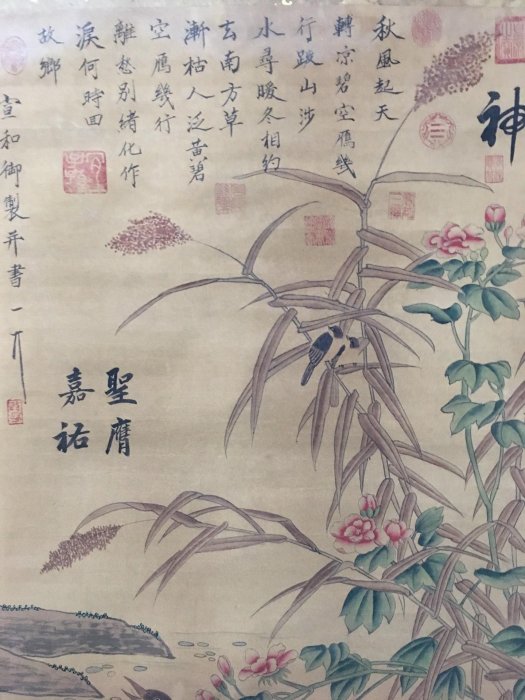 神
秋風起天
轉凉碧空雁幾
行跋山涉
水尋暖冬相約
去南方草
漸枯人泛黃碧
空雁幾行
離愁別緒化作
淚何時回
故鄉
宣和御製并書一
聖膺
嘉祐